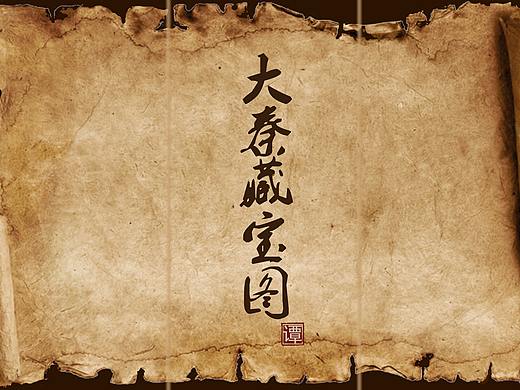 大秦藏宝图
谭